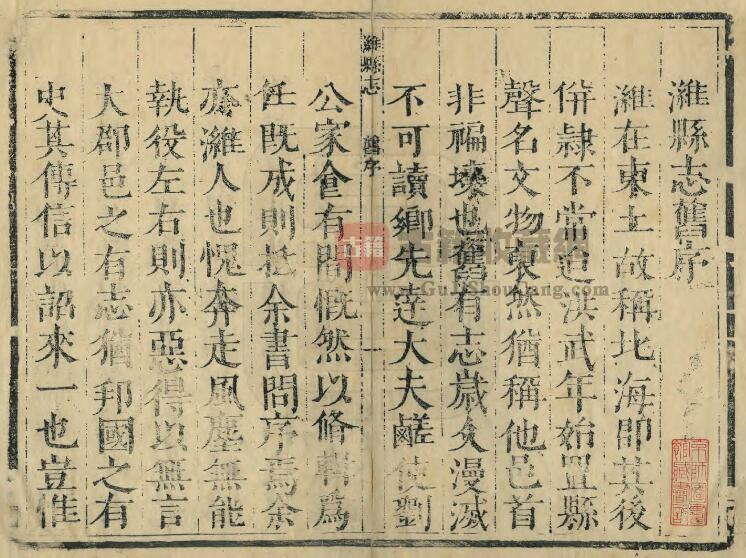 濰縣志舊序
濰在東土故稱北海即其後
併隸不當道洪武年始置縣
聲名文物東然猶稱他邑首
非褊壤也舊有志歲久漫滅
不可讀鄉先達大夫鹺使劉
濰縣志 舊序 一
公家食有間慨然以脩輯爲
任既成則抵余書問序焉余
亦濰人也愧奔走風塵無能
執役左右則亦惡得以無言
大郡邑之有志猶邦國之有
史其傳信以詔來一也豈惟
古籍
www.GuJiShouCang.com